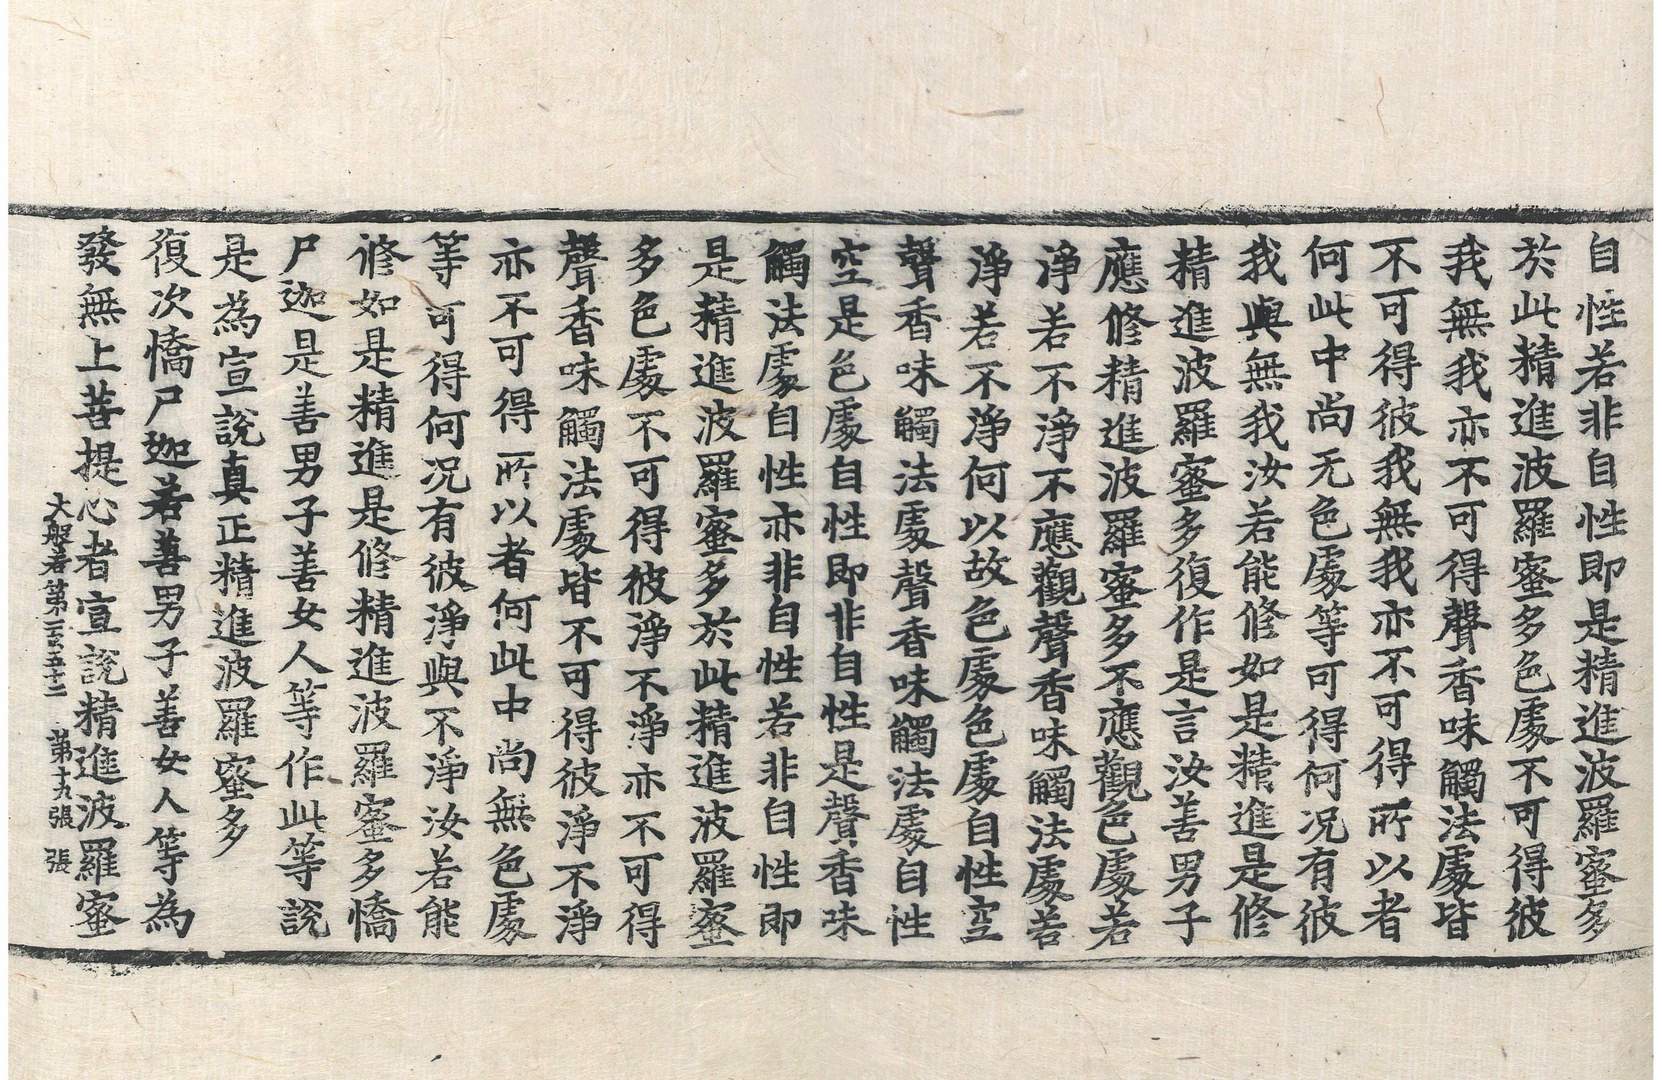 自性若非自性即是精進波羅蜜多
於此精進波羅蜜多色處不可得彼
我無我亦不可得聲香味觸法處皆
不可得彼我無我亦不可得所以者
何此中尚无色處等可得何況有彼
我與無我汝若能修如是精進是修
精進波羅蜜多復作是言汝善男子
應修精進波羅蜜多不應觀色處若
淨若不淨不應觀聲香味觸法處若
淨若不淨何以故色處色處自性空
聲香味觸法處聲香味觸法處自性
空是色處自性即非自性是聲香味
觸法處自性亦非自性若非自性即
是精進波羅蜜多於此精進波羅蜜
多色處不可得彼淨不淨亦不可得
聲香味觸法處皆不可得彼淨不淨
亦不可得所以者何此中尚無色處
等可得何況有彼淨與不淨汝若能
修如是精進是修精進波羅蜜多憍
尸迦是善男子善女人等作此等說
是為宣說真正精進波羅蜜多
復次憍尸迦若善男子善女人等為
發無上菩提心者宣說精進波羅蜜
大般若第一百五十二 第十九張 張